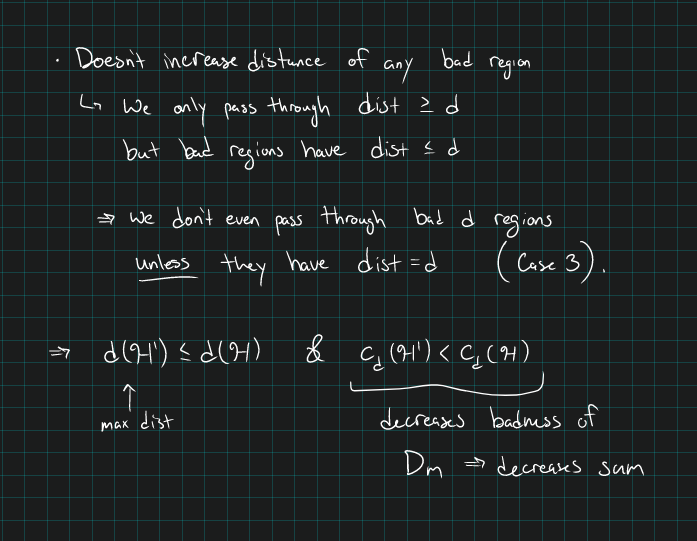 · Doesn't increase distance of any bad region
↳ We only pass through dist ≥ d
but bad regions have dist ≤ d
⇒ We don't even pass through bad d regions
unless they have dist = d (Case 3).
⇒ d(ℋ') ≤ d(ℋ) & C_d(ℋ') < C_d(ℋ)
↑
max dist
decreases badness of
Dm ⇒ decreases sum